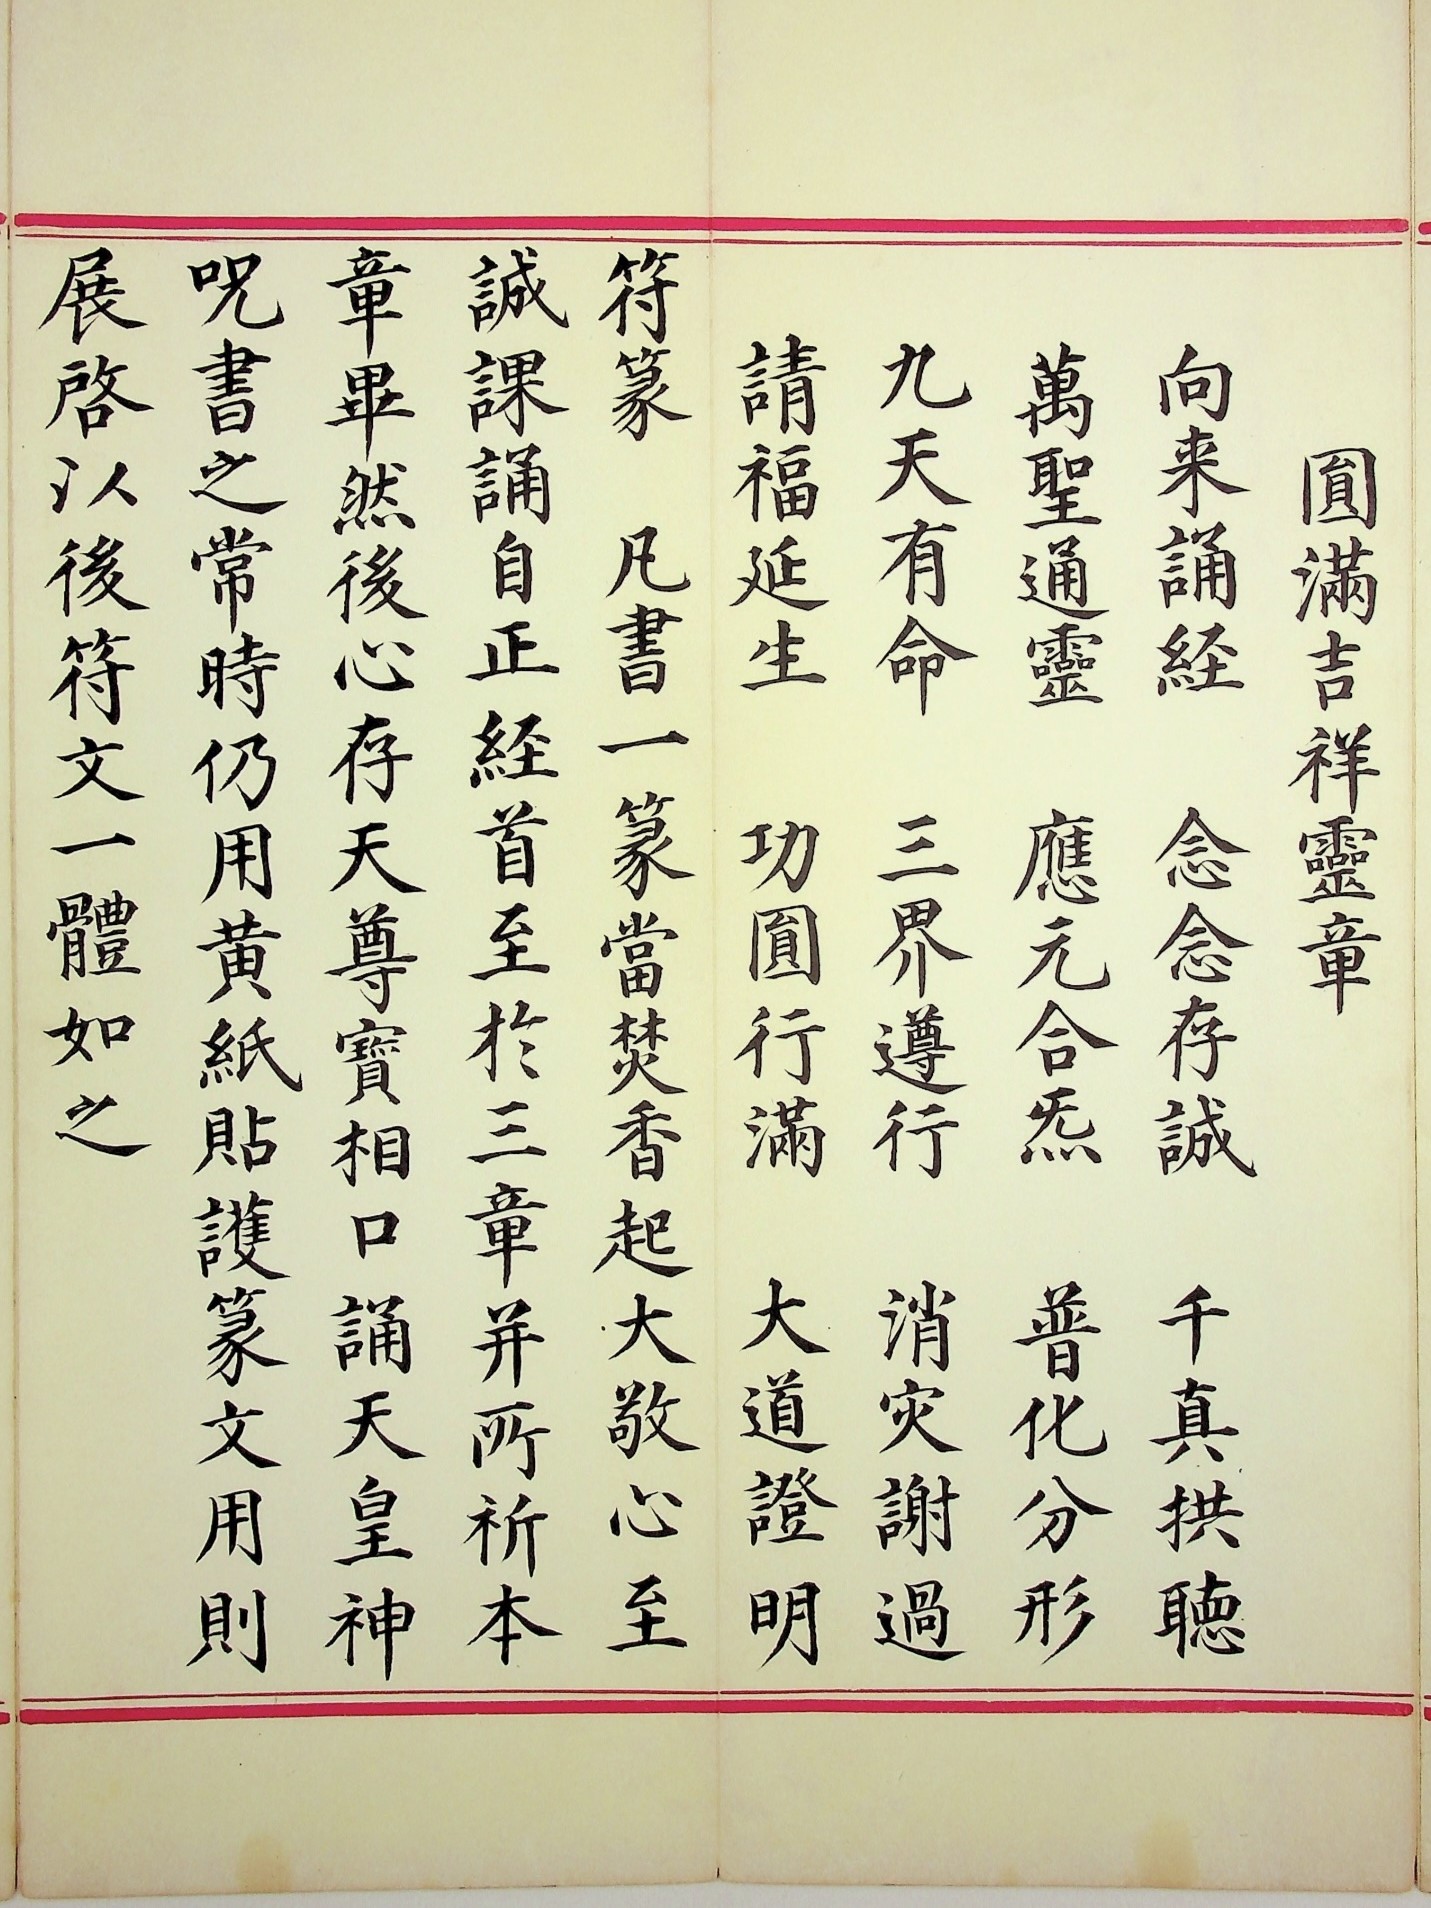 圓滿吉祥靈章
向来誦経　念念存誠　千真拱聽
萬聖通靈　應元合炁　普化分形
九天有命　三界遵行　消灾謝過
請福延生　功圓行滿　大道證明
符篆　凡書一篆當焚香起大敬心至
誠課誦自正経首至於三章并所祈本
章畢然後心存天尊寶相口誦天皇神
呪書之常時仍用黄紙貼護篆文用則
展啓以後符文一體如之